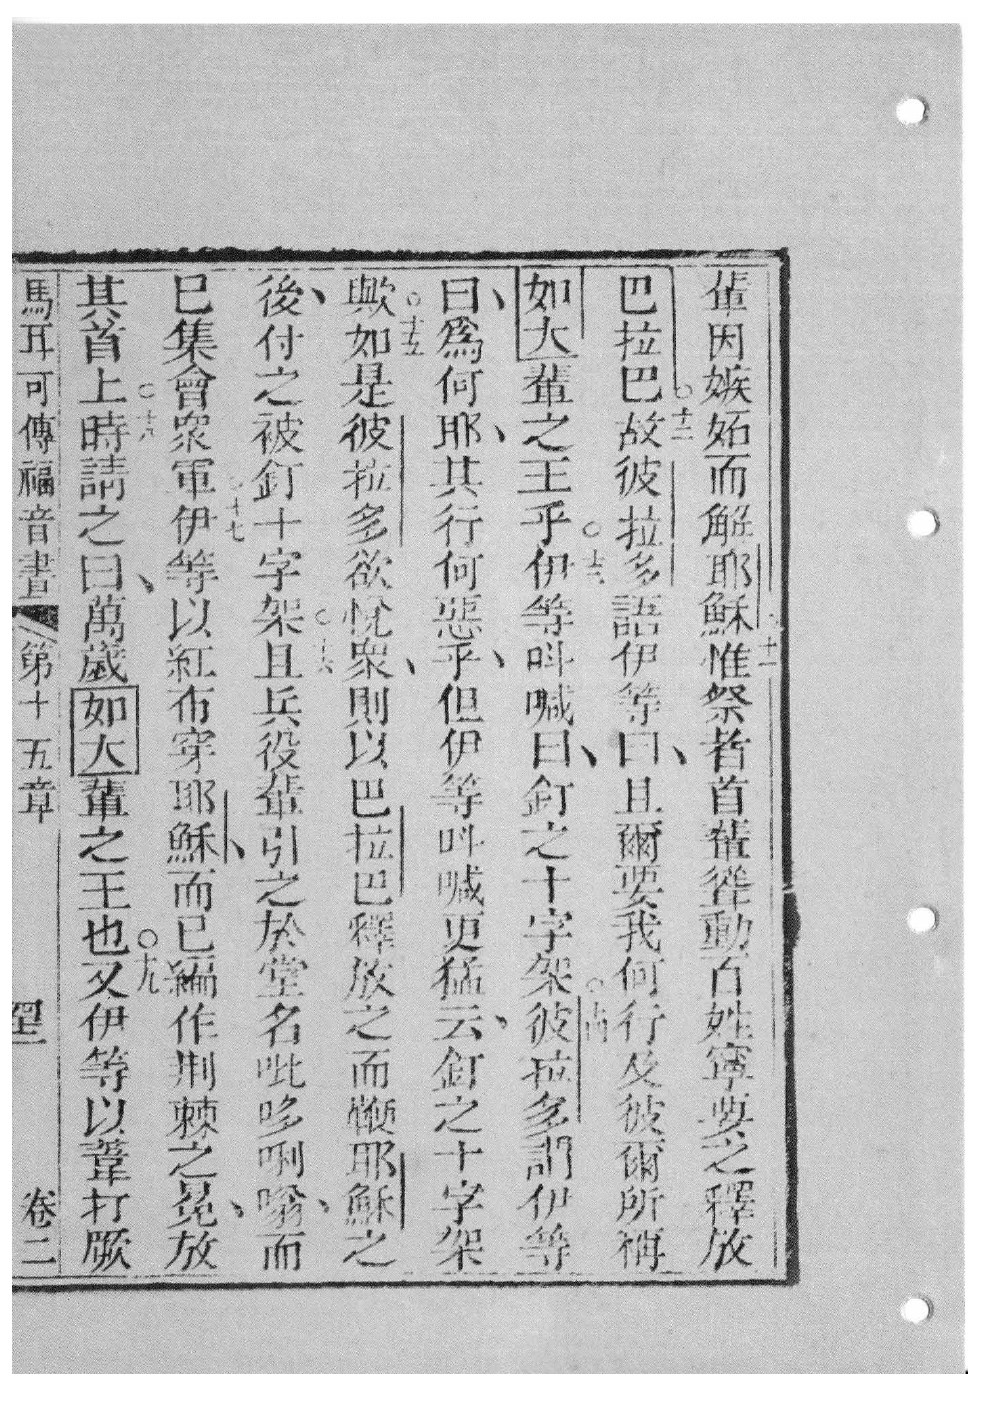 輩因嫉妬而解耶穌○十一惟祭者首輩聳動百姓寧要之釋放
巴拉巴○十二故彼拉多語伊等曰、且爾要我何行及彼爾所稱
如大輩之王乎○十三伊等呌喊曰、釘之十字架○十四彼拉多謂伊等
曰、爲何耶、其行何惡乎、但伊等呌喊更猛云、釘之十字架
○十五歟如是彼拉多欲悅衆、則以巴拉巴釋放之而鞭耶穌之
後、付之被釘十字架○十六且兵役輩引之於堂名吡哆唎嗡、而
已集會衆軍○十七伊等以紅布穿耶穌、而已編作荆棘之冕、放
其首上○十八時請之曰、萬歲如大輩之王也○十九又伊等以葦打厥
馬耳可傳福音書 第十五章 卷二